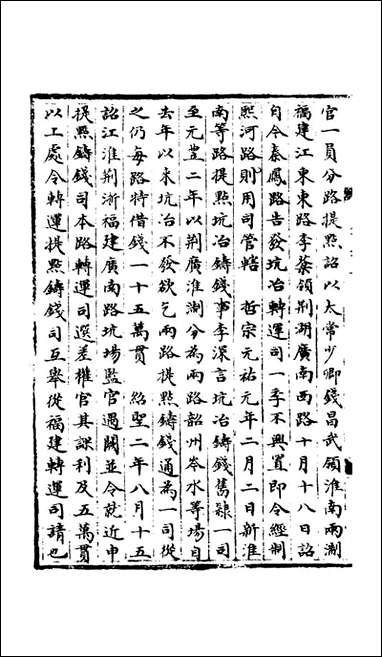 官一員分路提點詔以太常少卿錢昌武領淮南兩浙
福建江東東路李棻領荆湖廣南西路十月十八日詔
自今秦鳳路告發坑冶轉運司一季不興置即令經制
熙河路則用司管轄　哲宗元祐元年二月二日新淮
南等路提點坑冶鑄錢事李深言坑冶鑄錢舊隸一司
至元豊二年以荆廣淮淛分為兩路韶州岑水等場自
去年以來坑冶不發欲乞兩路提點鑄錢通為一司從
之仍每路特借錢一十五萬貫　紹聖二年八月十五
詔江淮荆浙福建廣南路坑場監官遇闕並令就近申
提點鑄錢司本路轉運司選差權官其課利及五萬貫
以工處令轉運提點鑄錢司互舉從福建轉運司請也